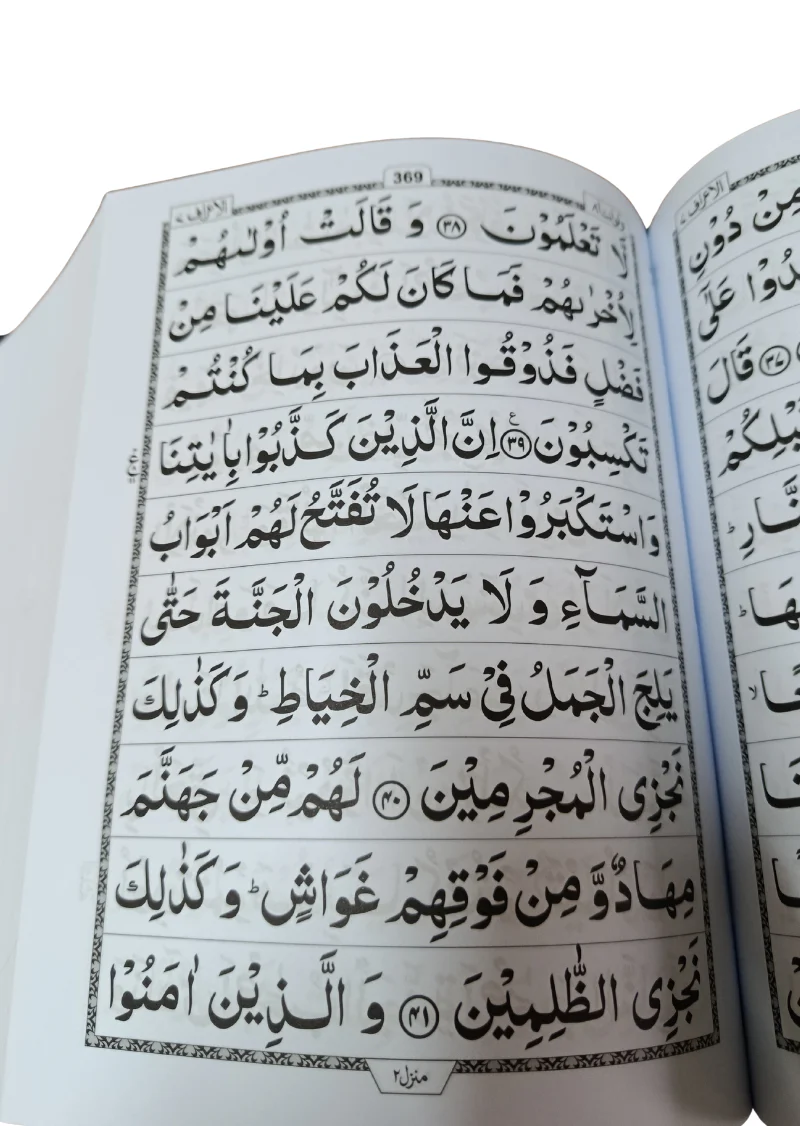 369
الاعراف ۷
ولواننا ۸
لَا تَعْلَمُوْنَ ﴿۳۸﴾ وَ قَالَتْ اُوْلٰىهُمْ
لِاُخْرٰىهُمْ فَمَا كَانَ لَكُمْ عَلَيْنَا مِنْ
فَضْلٍ فَذُوْقُوا الْعَذَابَ بِمَا كُنْتُمْ
تَكْسِبُوْنَ ﴿۳۹﴾ ع اِنَّ الَّذِيْنَ كَذَّبُوْا بِاٰيٰتِنَا
وَاسْتَكْبَرُوْا عَنْهَا لَا تُفَتَّحُ لَهُمْ اَبْوَابُ
السَّمَآءِ وَ لَا يَدْخُلُوْنَ الْجَنَّةَ حَتّٰى
يَلِجَ الْجَمَلُ فِيْ سَمِّ الْخِيَاطِ ؕ وَ كَذٰلِكَ
نَجْزِى الْمُجْرِمِيْنَ ﴿۴۰﴾ لَهُمْ مِّنْ جَهَنَّمَ
مِهَادٌ وَّ مِنْ فَوْقِهِمْ غَوَاشٍ ؕ وَ كَذٰلِكَ
نَجْزِى الظّٰلِمِيْنَ ﴿۴۱﴾ وَ الَّذِيْنَ اٰمَنُوْا
منزل ۲
الاعراف ۷
مِنْ دُوْنِ
عَلٰٓى
﴿۳۷﴾ قَالَ